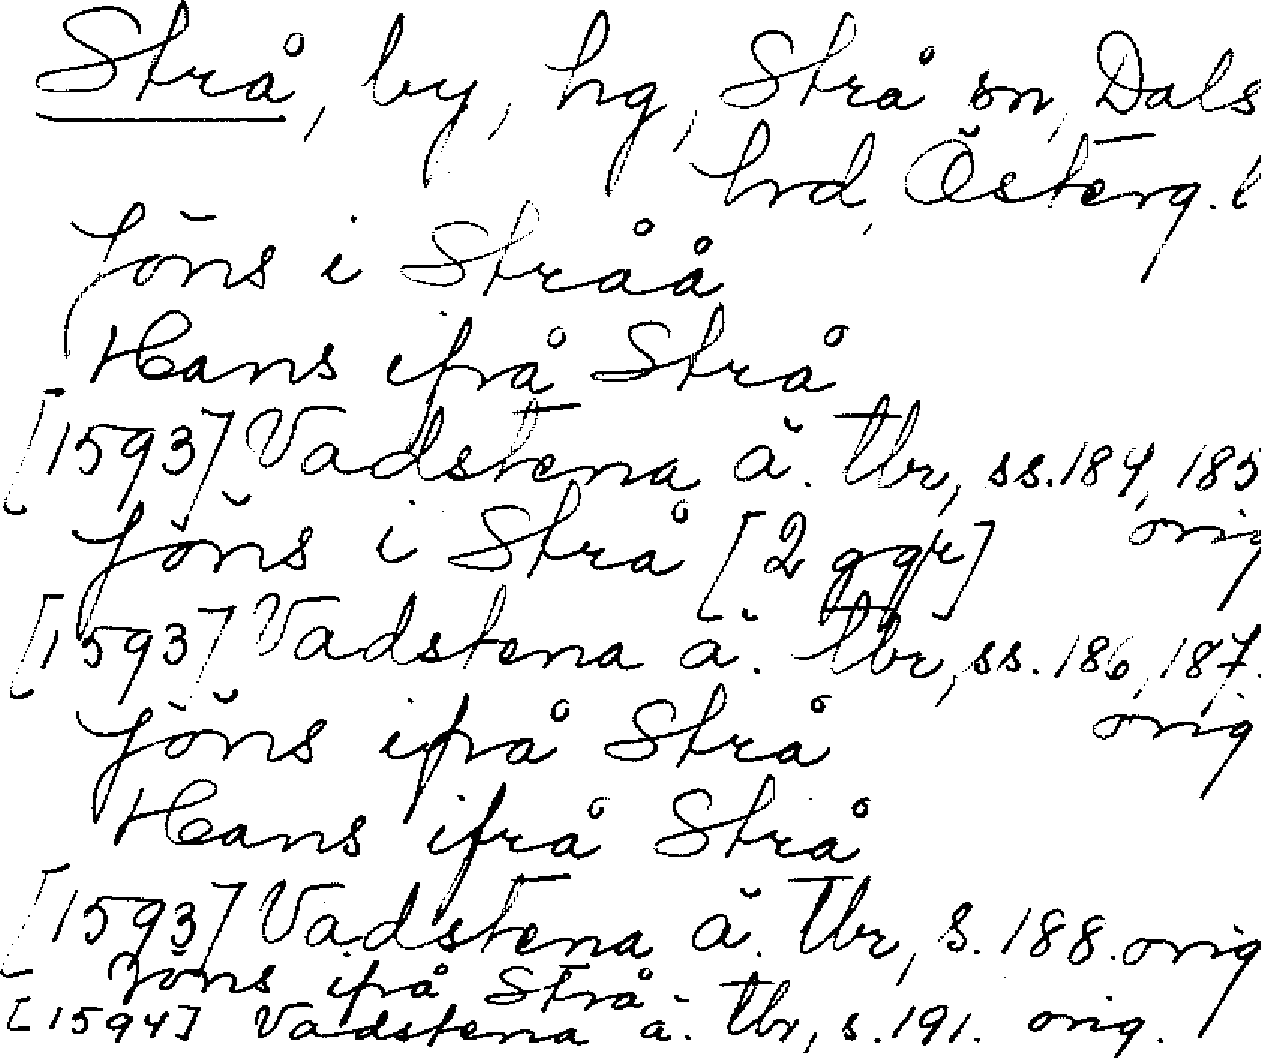 Strå, by, hg, Strå sn, Dals
hrd, Österg. l
Jöns i Stråå
Hans ifrå Strå
[1593] Vadstena ä. tbr, ss. 184, 185
orig
Jöns i Strå [2 ggr]
[1593] Vadstena ä. tbr, ss. 186, 187.
orig
Jöns ifrå Strå
Hans ifrå Strå
[1593] Vadstena ä. tbr, s. 188. orig
Jöns ifrå Strå.
[1594] Vadstena ä. tbr, s. 191. orig.